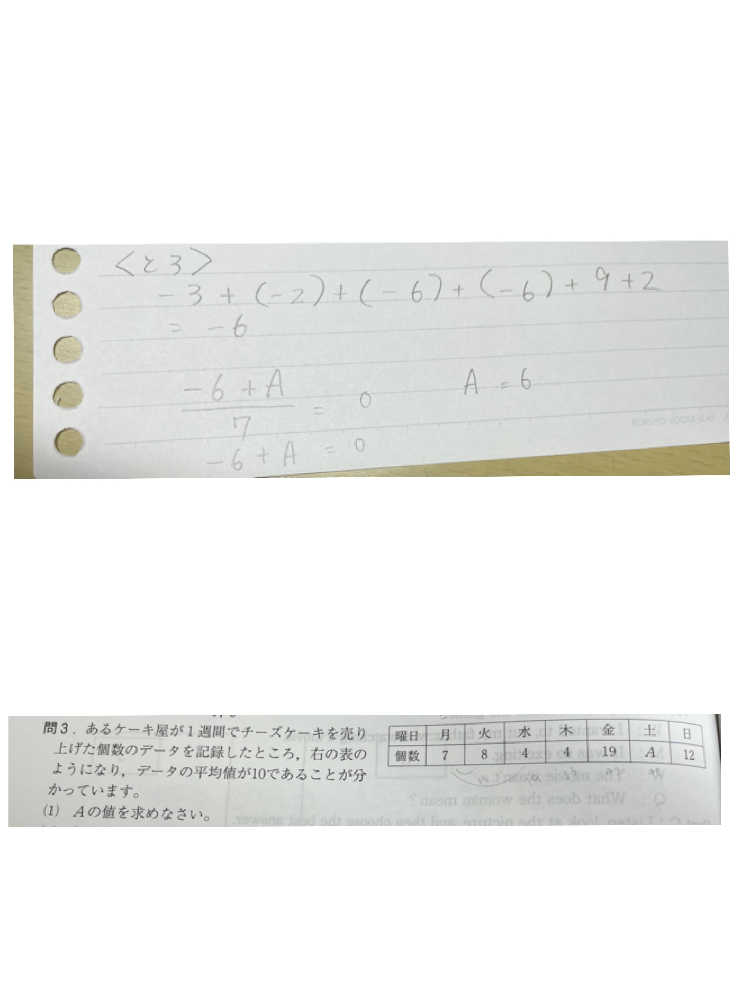 <と3>
-3+(-2)+(-6)+(-6)+9+2
= -6
-6+A
7
= 0
A = 6
-6+A = 0
KOKUYO LOOSE LEAF
問3．あるケーキ屋が1週間でチーズケーキを売り
上げた個数のデータを記録したところ，右の表の
ようになり，データの平均値が10であることが分
かっています。
(1) Aの値を求めなさい。
曜日 月 火 水 木 金 土 日
個数 7 8 4 4 19 A 12
Q : What does the woman mean ?
Listen, look at the picture, and then choose the best answer.